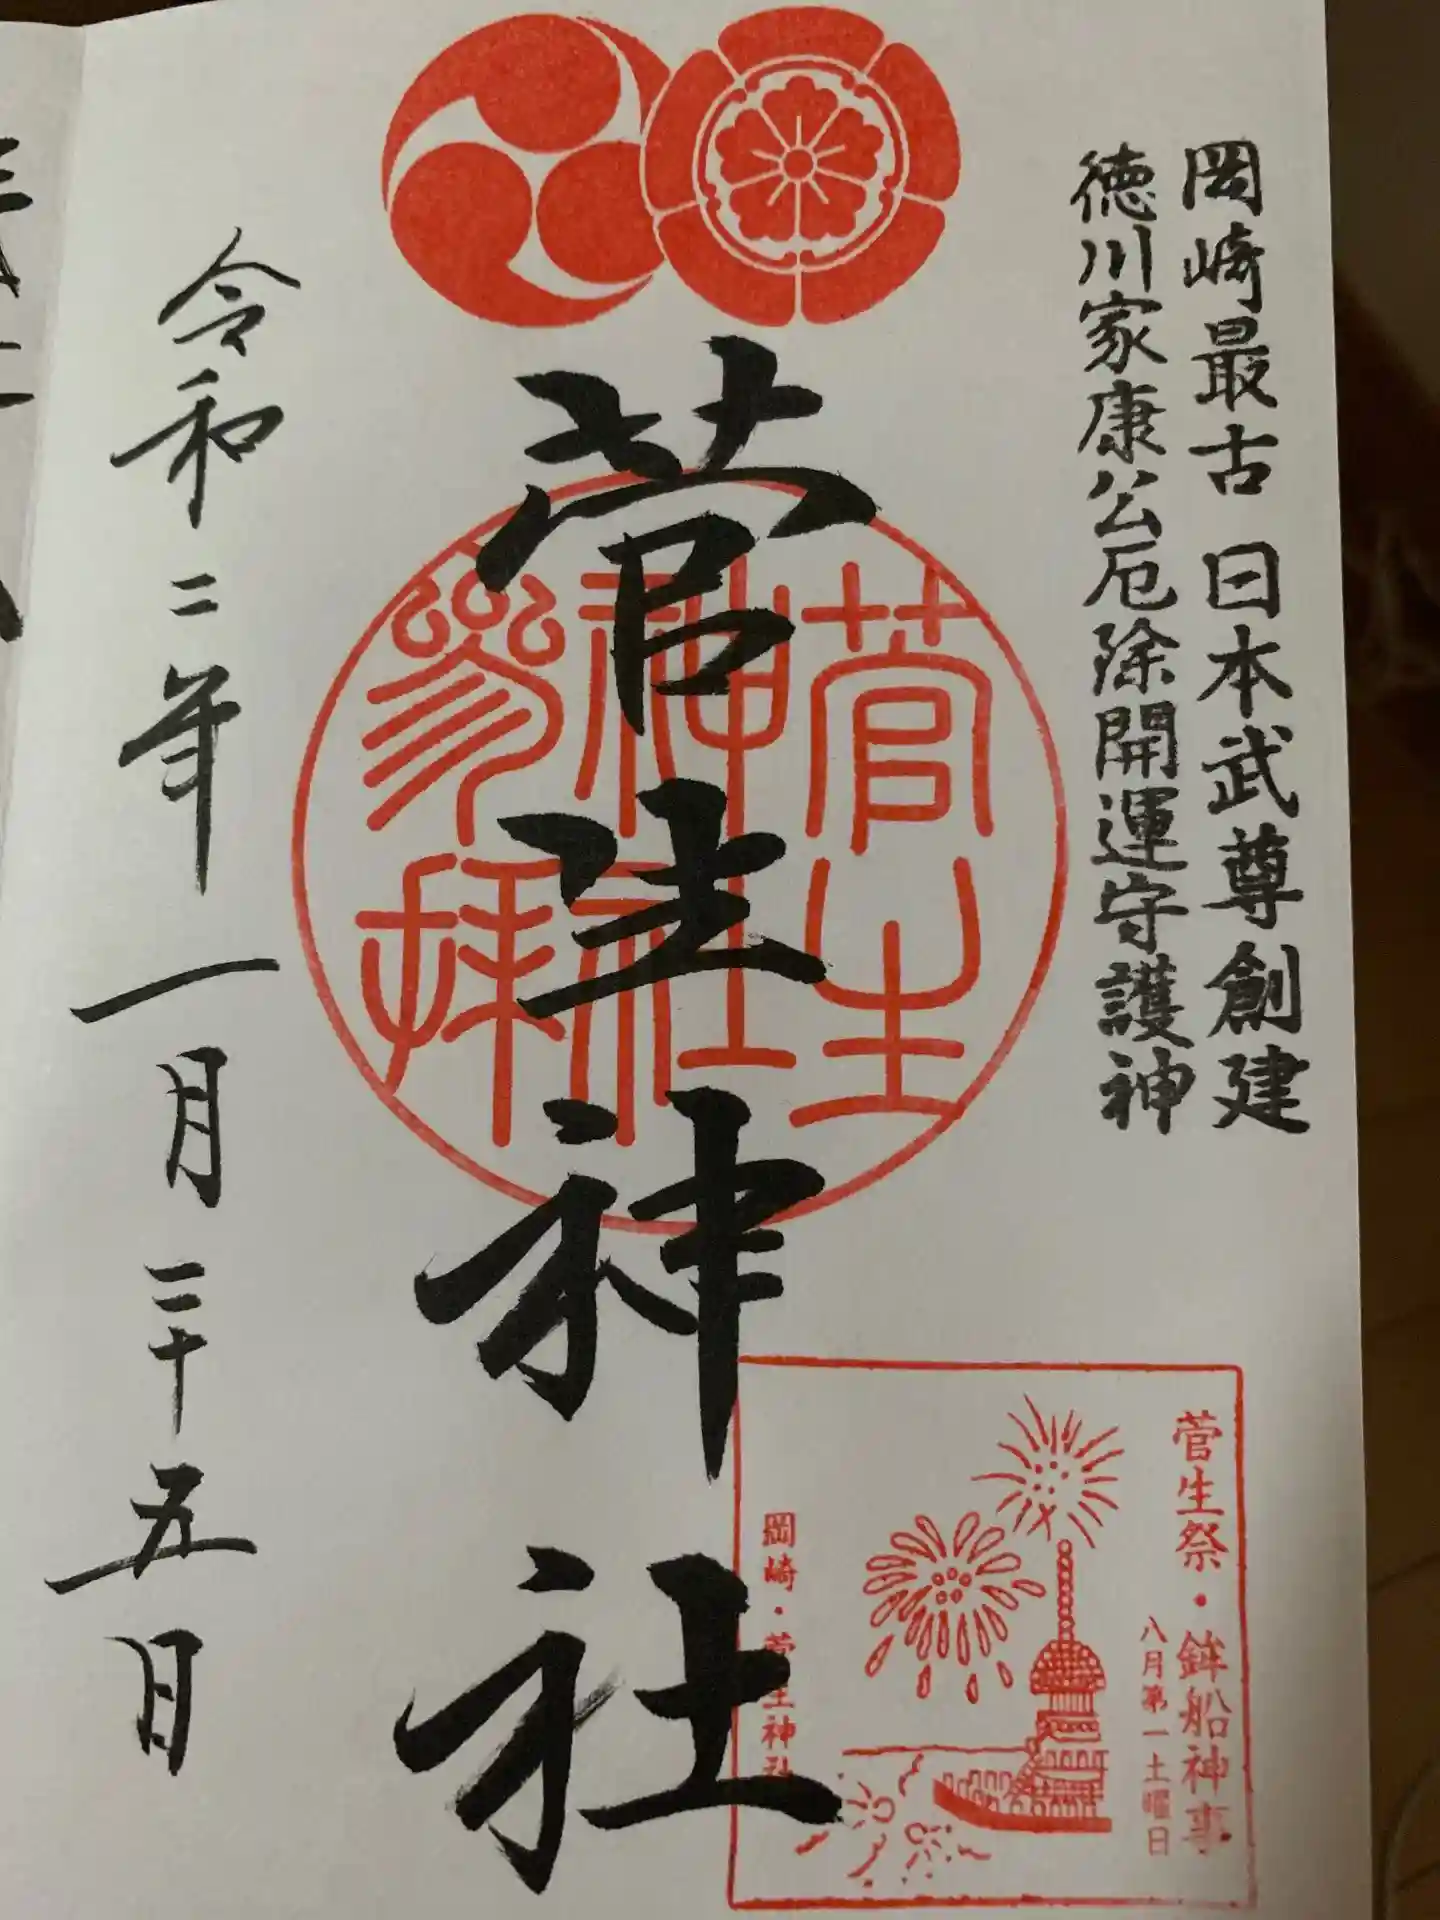 岡崎最古 日本武尊創建
徳川家康公厄除開運守護神
菅生神社
菅生
神社
参拝
令和二年一月二十五日
菅生祭・鉾船神事
八月第一土曜日
岡崎・菅生神社